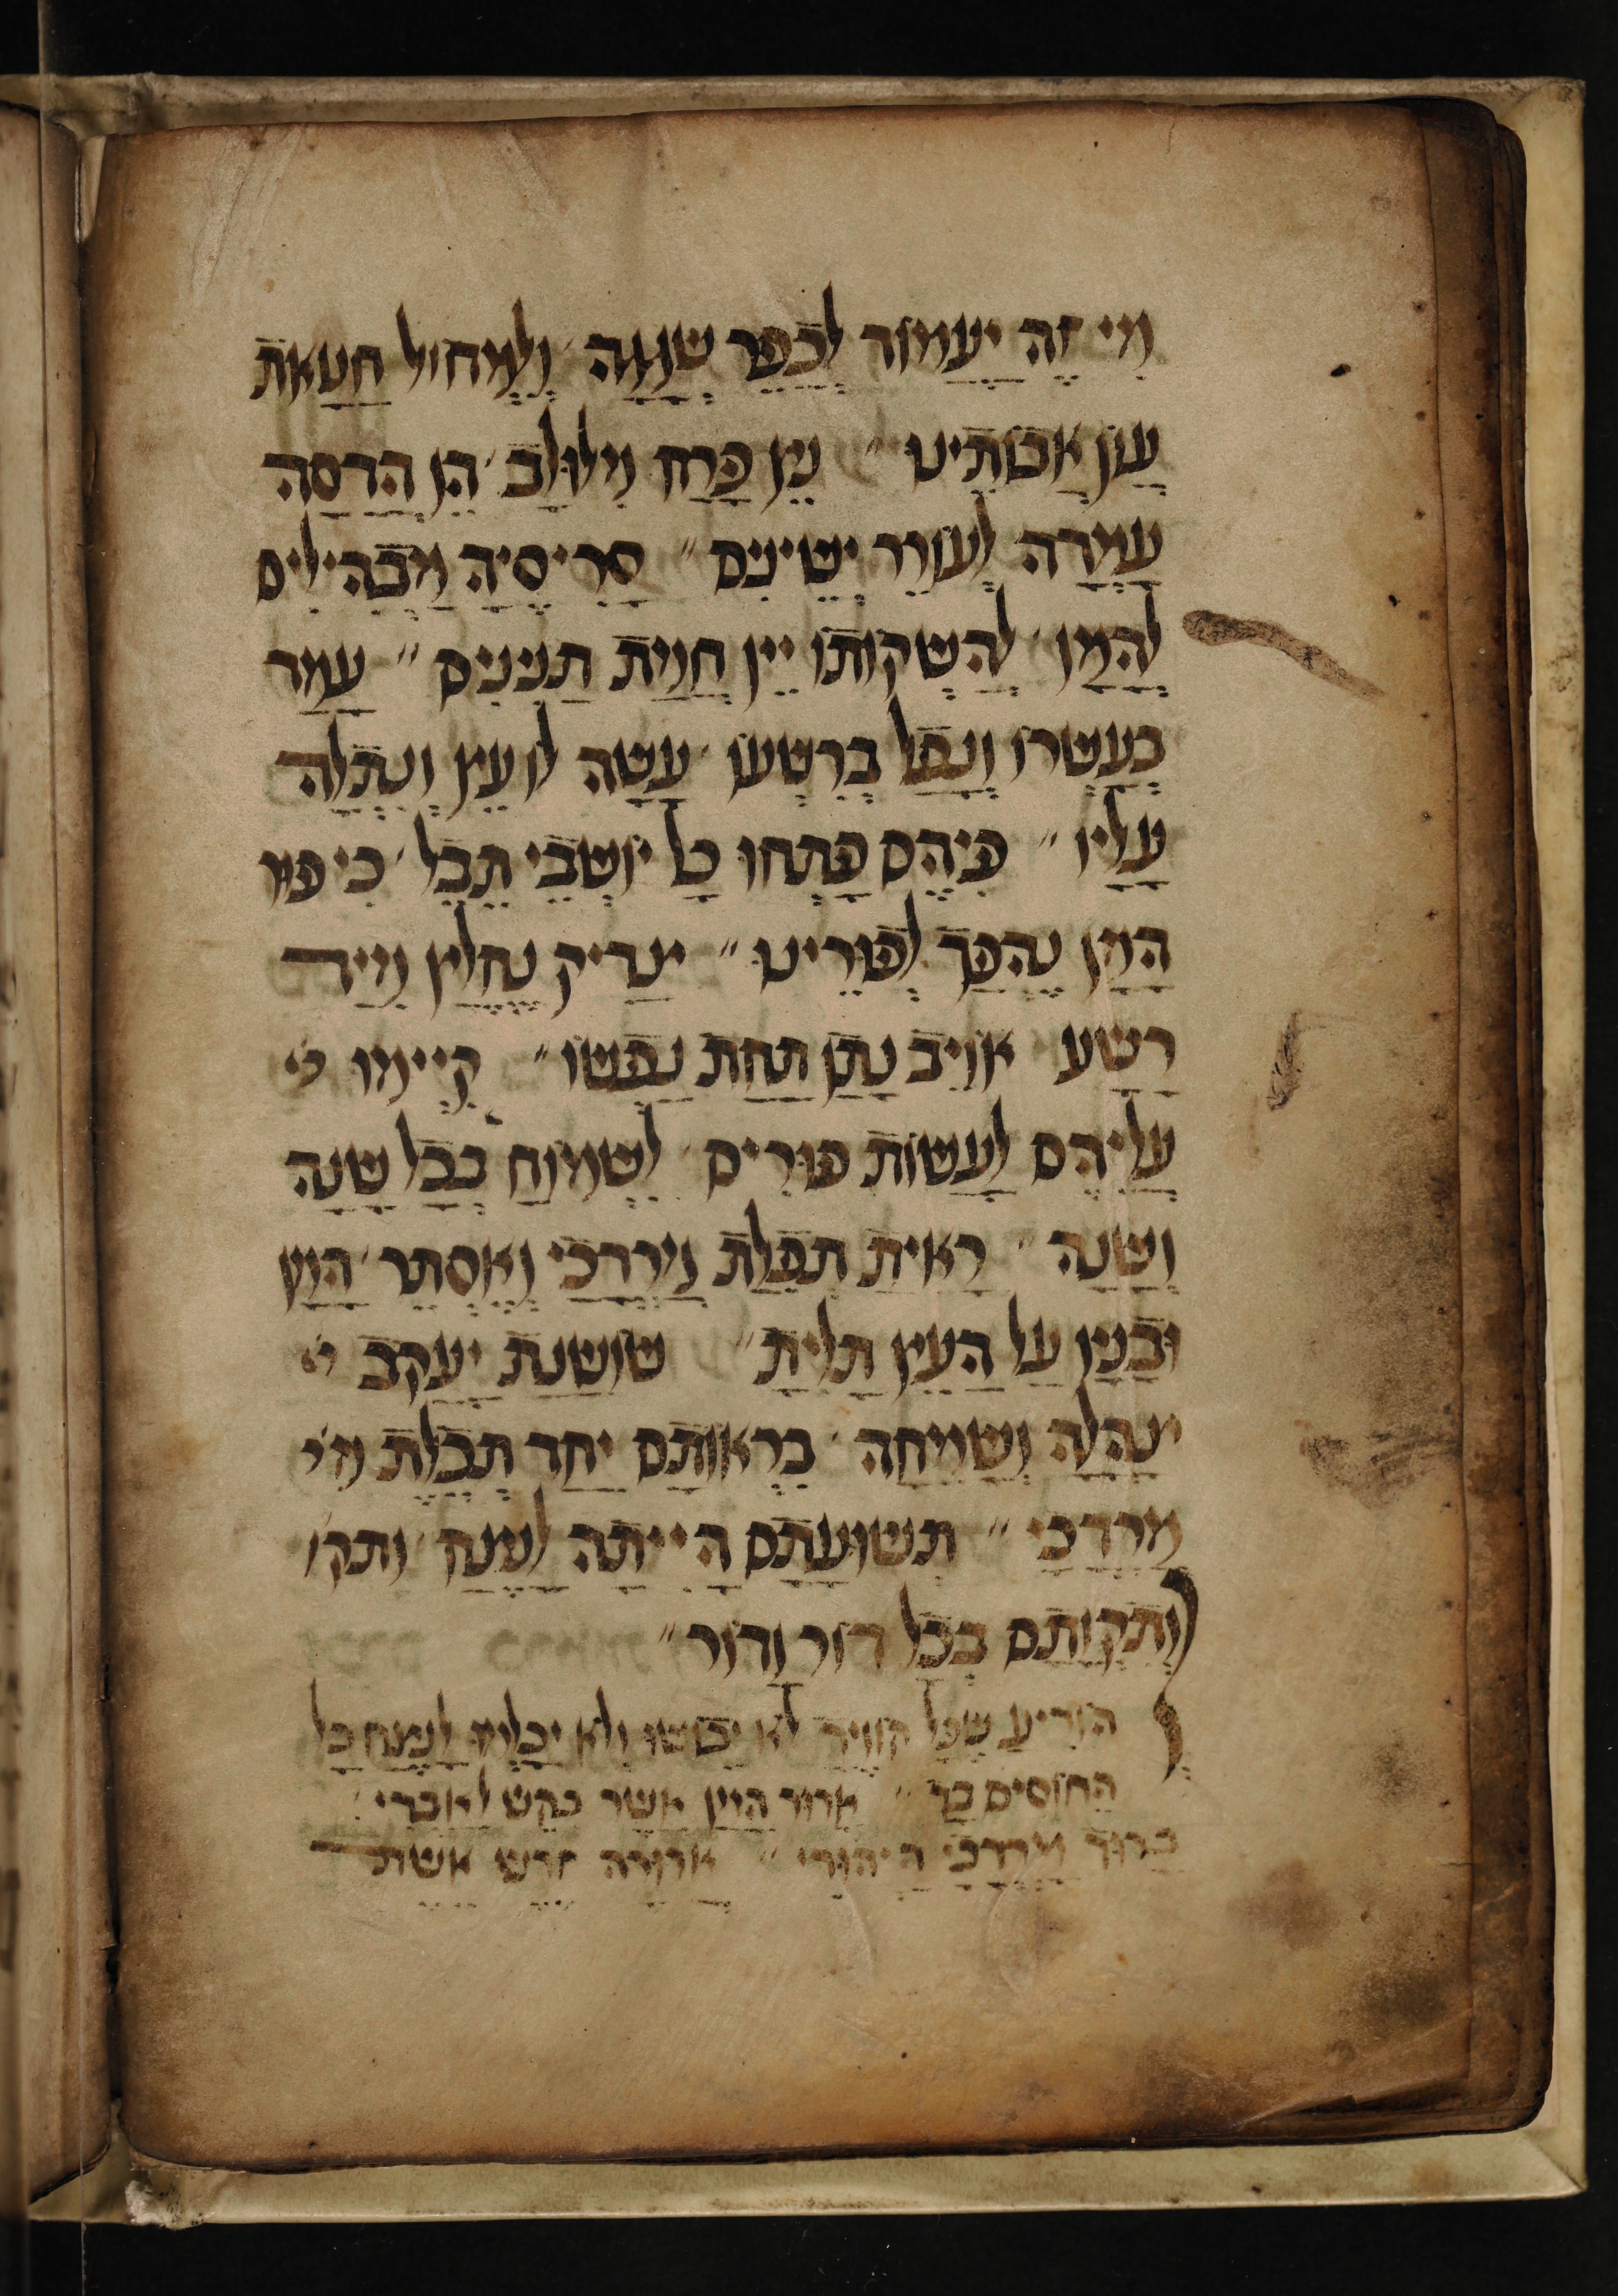 מִי זֶה יַעֲמוֹד לְכַפֵּר שְׁגָגָה וְלִמְחוֹל חַטַּאת
עֲוֹן אֲבוֹתֵינוּ״ נֵץ פָּרַח מִלּוּלָב׳ הֵן הֲדַסָּה
עָמְדָה לְעוֹרֵר יְשֵׁינִים״ סָרִיסֶיהָ מַבְהִילִים
לְהָמָן׳ לְהַשְׁקוֹתוֹ יֵין חֲמַת תַּנִּינִים״ עָמַד
בְּעָשְׁרוֹ וְנָפַל בְּרִשְׁעוֹ׳ עָשָׂה לוֹ עֵץ וְנִתְלָה
עָלָיו״ פִּיהֶם פָּתְחוּ כָּל יוֹשְׁבֵי תֵבֵל׳ כִּי פוּר
הָמָן נֶהְפַּךְ לְפוּרֵינוּ״ צַדִּיק נֶחֱלַץ מִיַּד
רָשָׁע אוֹיֵב נִתַּן תַּחַת נַפְשׁוֹ״ קִיְּימוּ
עֲלֵיהֶם לַעֲשׂוֹת פּוּרִים׳ לִשְׂמוֹחַ בְּכָל שָׁנָה
וְשָׁנָה״ רָאִיתָ תְּפִלַּת מָרְדְּכַי וְאֶסְתֵּר׳ הָמָן
וּבָנָיו עַל הָעֵץ תָּלִיתָ״ שׁוֹשַׁנַּת יַעֲקֹב
צָהֲלָה וְשָׂמֵחָה׳ בִּרְאוֹתָם יַחַד תְּכֵלֶת מׄ
מָרְדְּכַי״ תְּשׁוּעָתָם הָיִיתָה לָנֶצַח׳ ותקׄו
וְתִקְוָתָם בְּכָל דּוֹר וָדוֹר״
הוֹדִיעַ שֶׁכָּל קוֹוֶיךָ לֹא יֵבוֹשׁוּ וְלֹא יִכָּלְמוּ לָנֶצַח כָּל
הַחוֹסִים בָּךְ״ אָרוּר הָמָן אֲשֶׁר בִּקֵּשׁ לְאַבְּדִי׳
בָּרוּךְ מָרְדְּכַי הַיְּהוּדִי״ אֲרוּרָה זֶרֶשׁ אֵשֶׁת